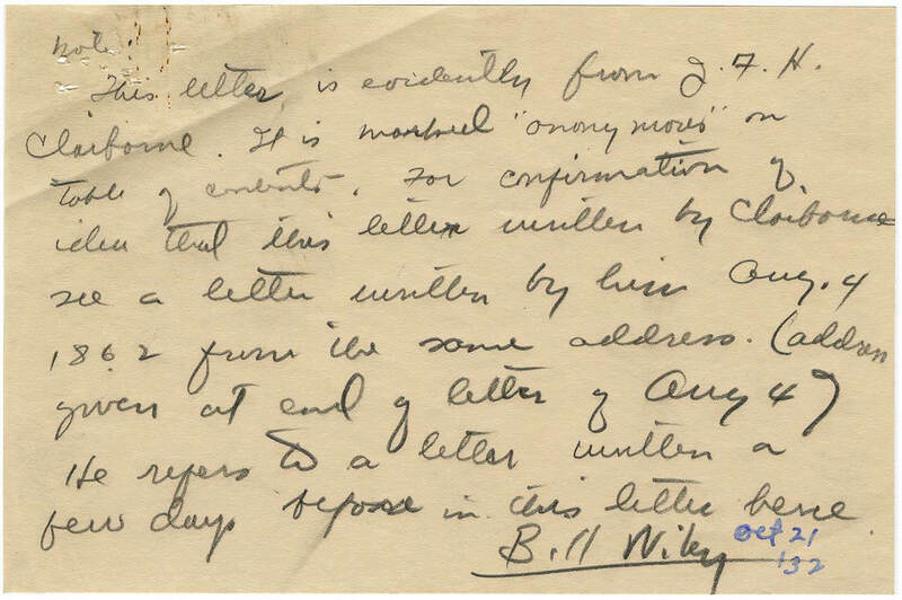 Note:
This letter is evidently from J. F. H.
Claiborne. It is marked "anonymous" on
table of contents. For confirmation of
idea that this letter written by Claiborne
see a letter written by him Aug. 4
1862 from the same address. (address
given at end of letter of Aug 4)
He refers to a letter written a
few days before in this letter here.
Bill Wiley Oct 21
'32